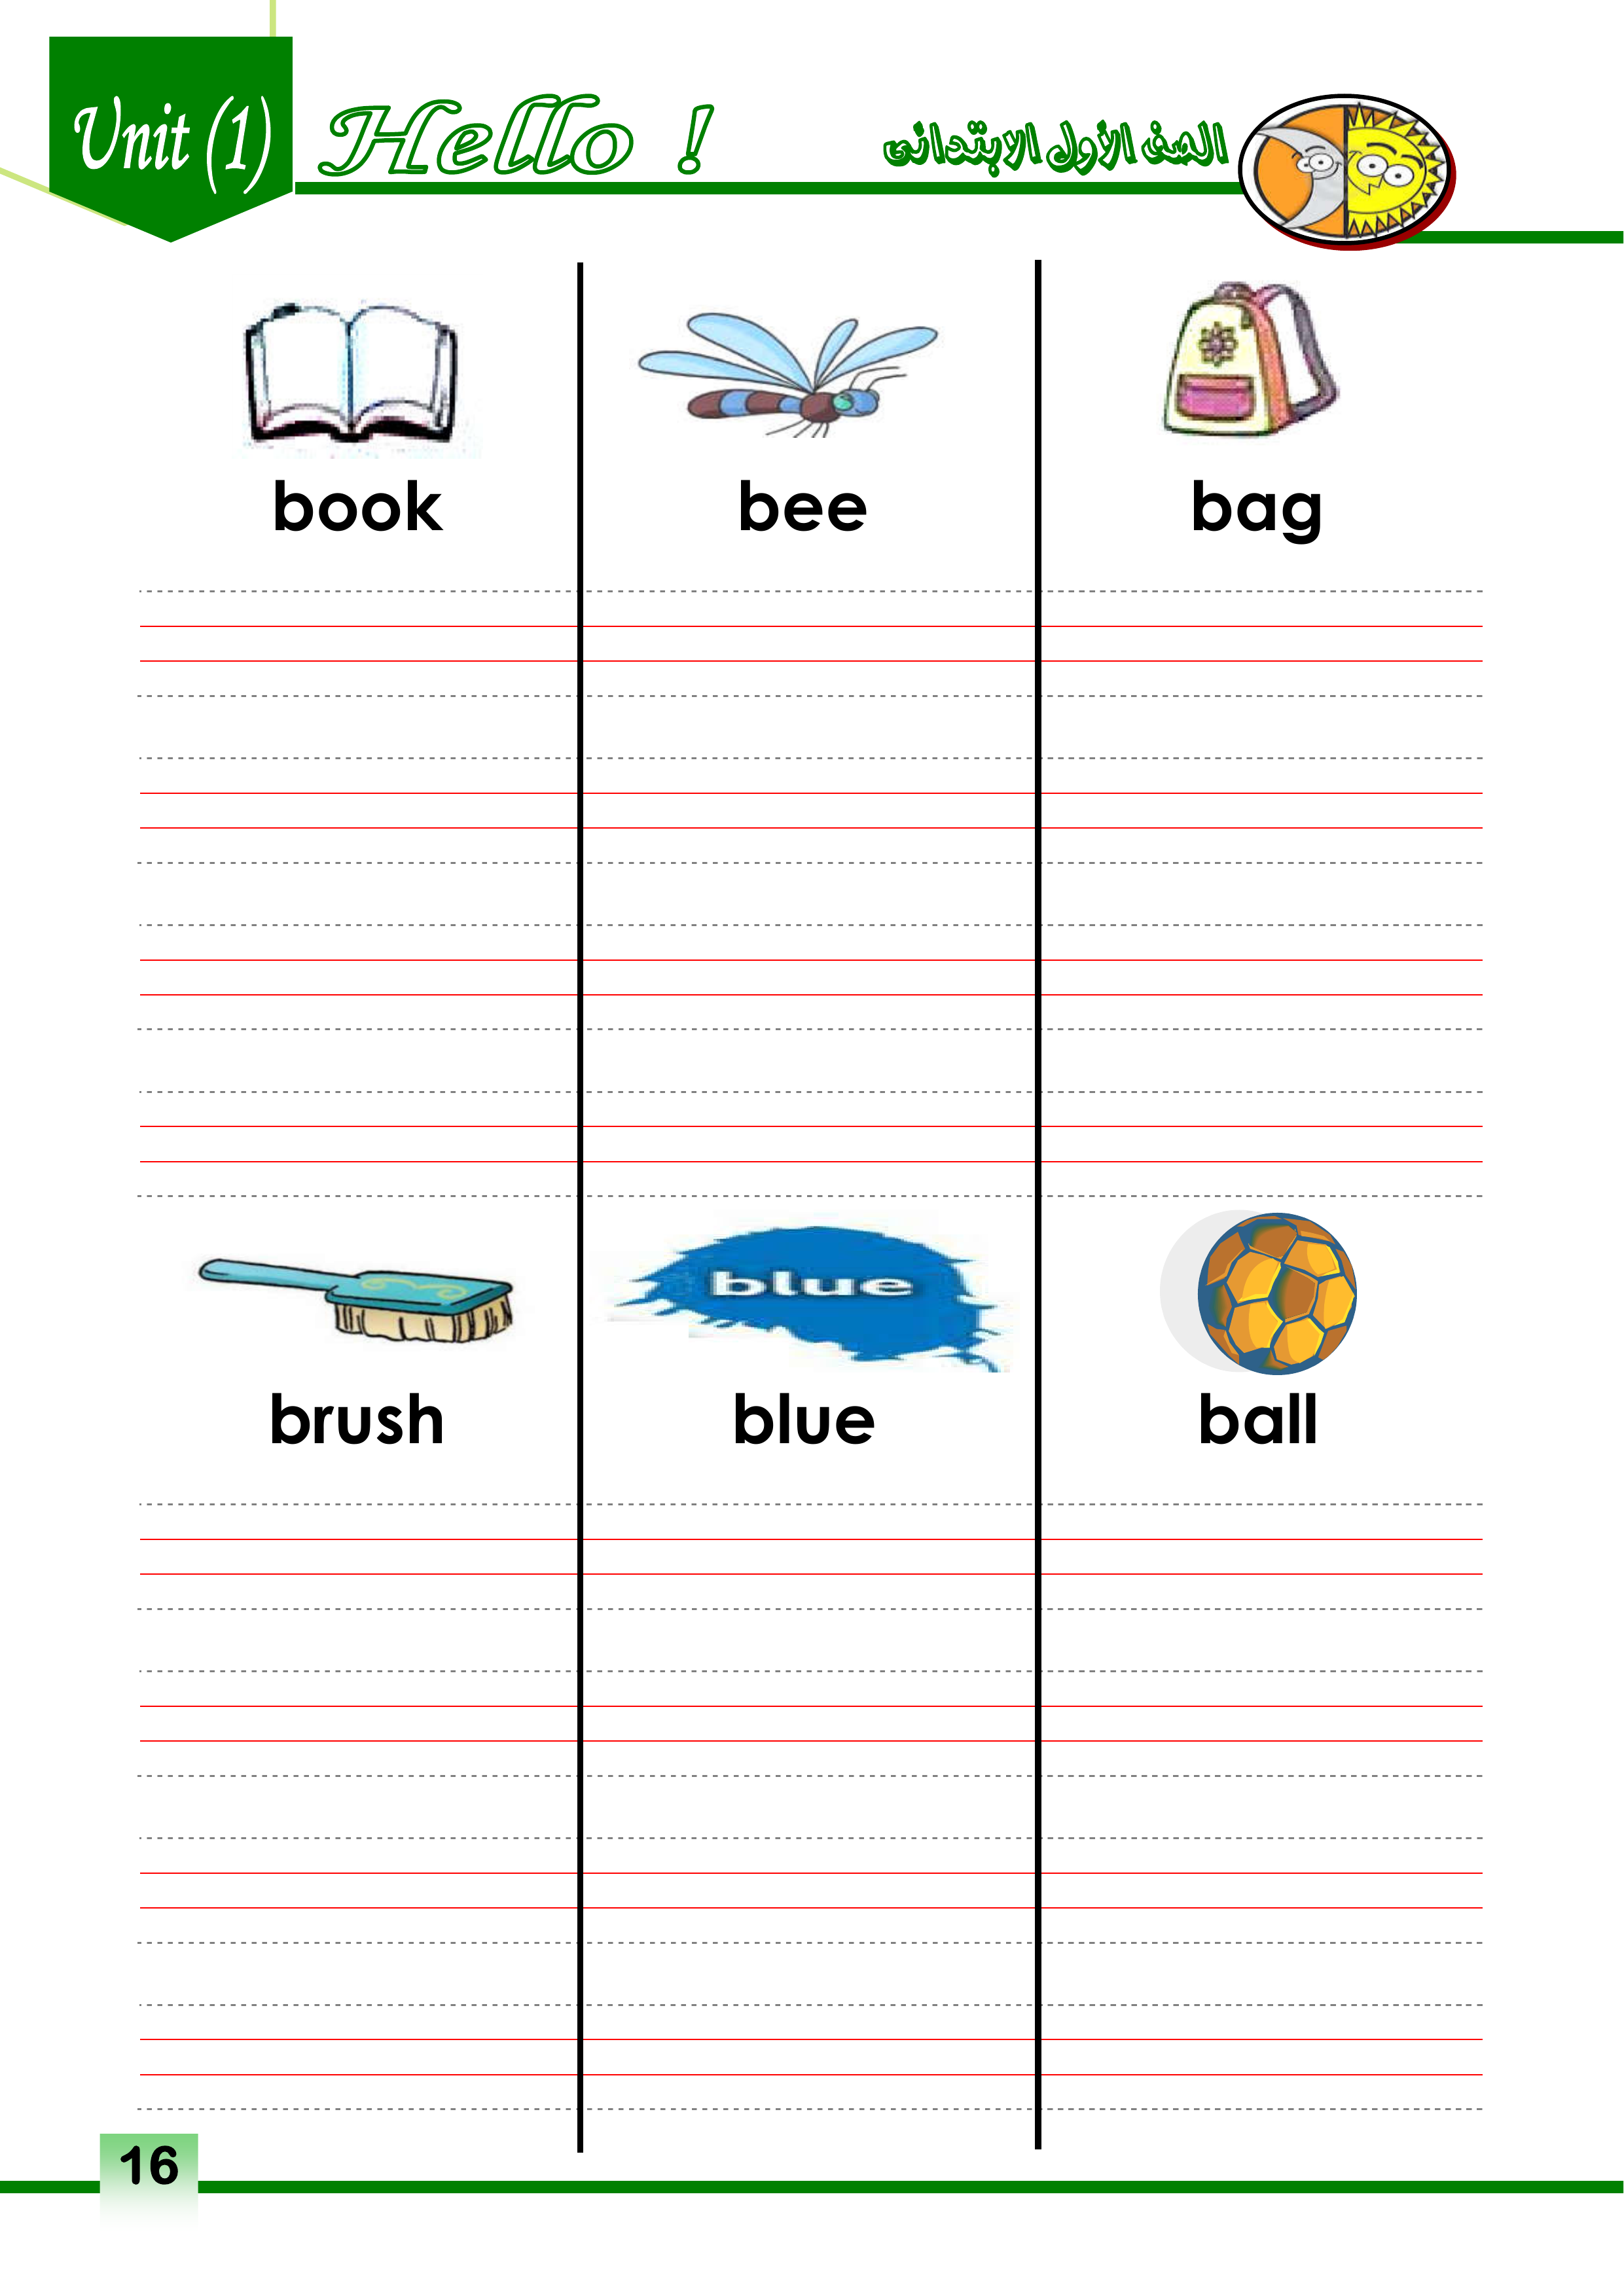 Unit (1)
Hello !
الصف الأول الابتدائى
book bee bag
blue
brush blue ball
16